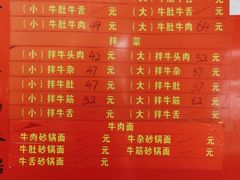 （小）牛肚牛舌 元 （大）牛肚牛舌 元
（小）牛肚牛肉 44 元 （大）牛肚牛肉 64 元
拌 菜
（小）拌牛头肉 42 元 （大）拌牛头肉 52 元
（小）拌牛杂 47 元 （大）拌牛杂 57 元
（小）拌牛肚 47 元 （大）拌牛肚 57 元
（小）拌牛筋 52 元 （大）拌牛筋 62 元
（小）拌牛舌 元 （大）拌牛舌 元
牛肉面
牛肉砂锅面 元 牛杂砂锅面 元
牛肚砂锅面 元 牛筋砂锅面 元
牛舌砂锅面 元